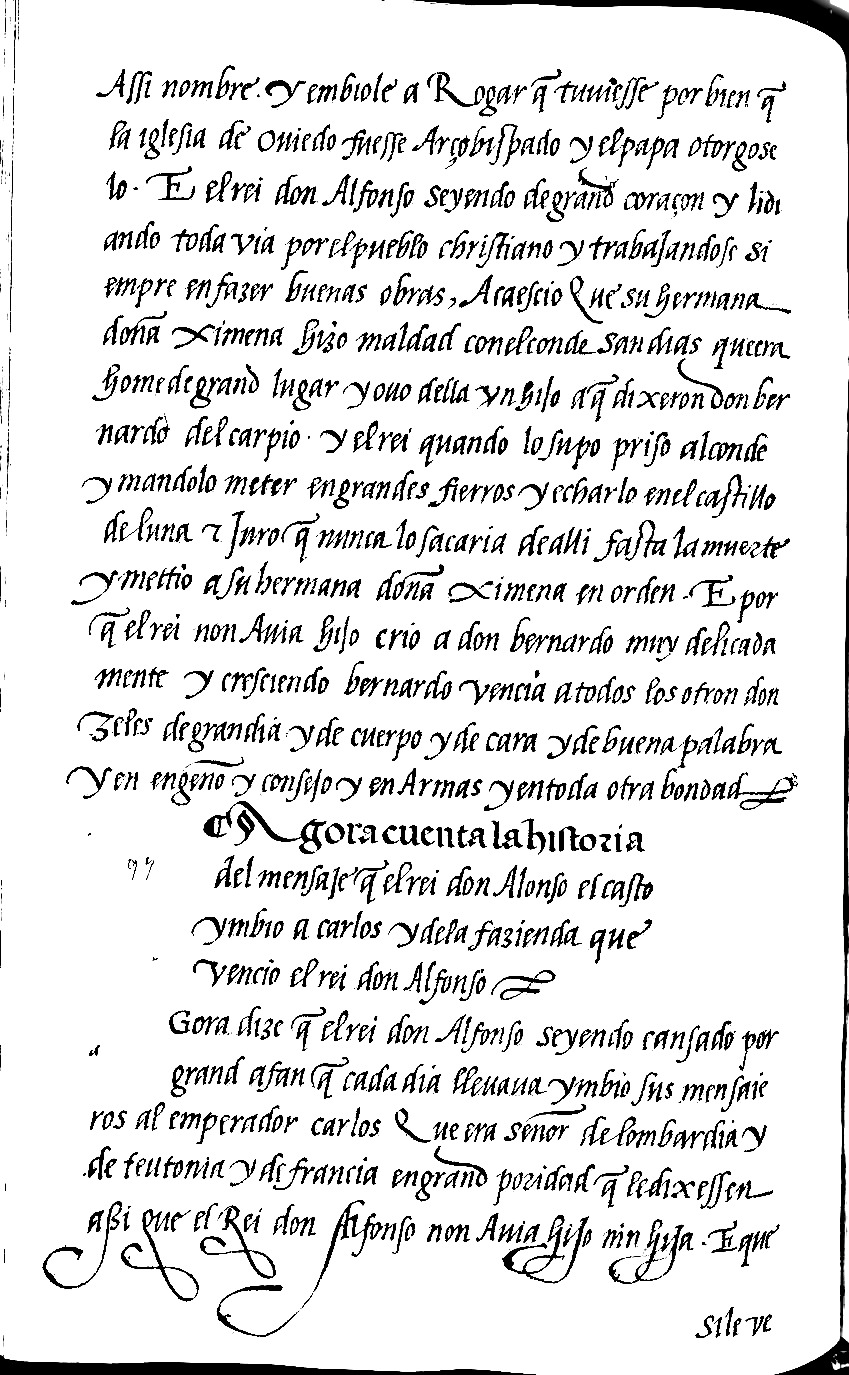 Assi nombre. y embiole a Rogar q̃ tuuiesse por bien q̃
la iglesia de ouiedo fuesse Arçobispado y el papa otorgose
lo. E el rei don Alfonso seyendo de grand coraçon y lidi
ando toda via por el pueblo christiano y trabajandose si
empre en fazer buenas obras, Acaescio Que su hermana
doña Ximena hizo maldad con el conde san dias que era
home de grand lugar y ouo della vn hijo a q̃ dixeron don ber
nardo del carpio. y el rei quando lo supo priso al conde
y mandolo meter en grandes fierros y echarlo en el castillo
de luna ⁊ Juro q̃ nunca lo sacaria de alli fasta la muerte
y mettio a su hermana doña Ximena en orden. E por
q̃ el rei non Auia hijo crio a don bernardo muy delicada
mente y cresciendo bernardo vencia a todos los otron don
zeles de grandia y de cuerpo y de cara y de buena palabra
y en engeño y consejo y en Armas y en toda otra bondad
¶ Agora cuenta la historia
97 del mensaje q̃ el rei don Alonso el casto
ymbio a carlos y de la fazienda que
vencio el rei don Alfonso
a Gora dize q̃ el rei don Alfonso seyendo cansado por
grand afan q̃ cada dia lleuaua ymbio sus mensaje
ros al emperador carlos Que era señor de lombardia y
de teutonia y de francia en grand poridad q̃ le dixessen
assi que el Rei don Alfonso non Auia hijo nin hija. E que
si le ve